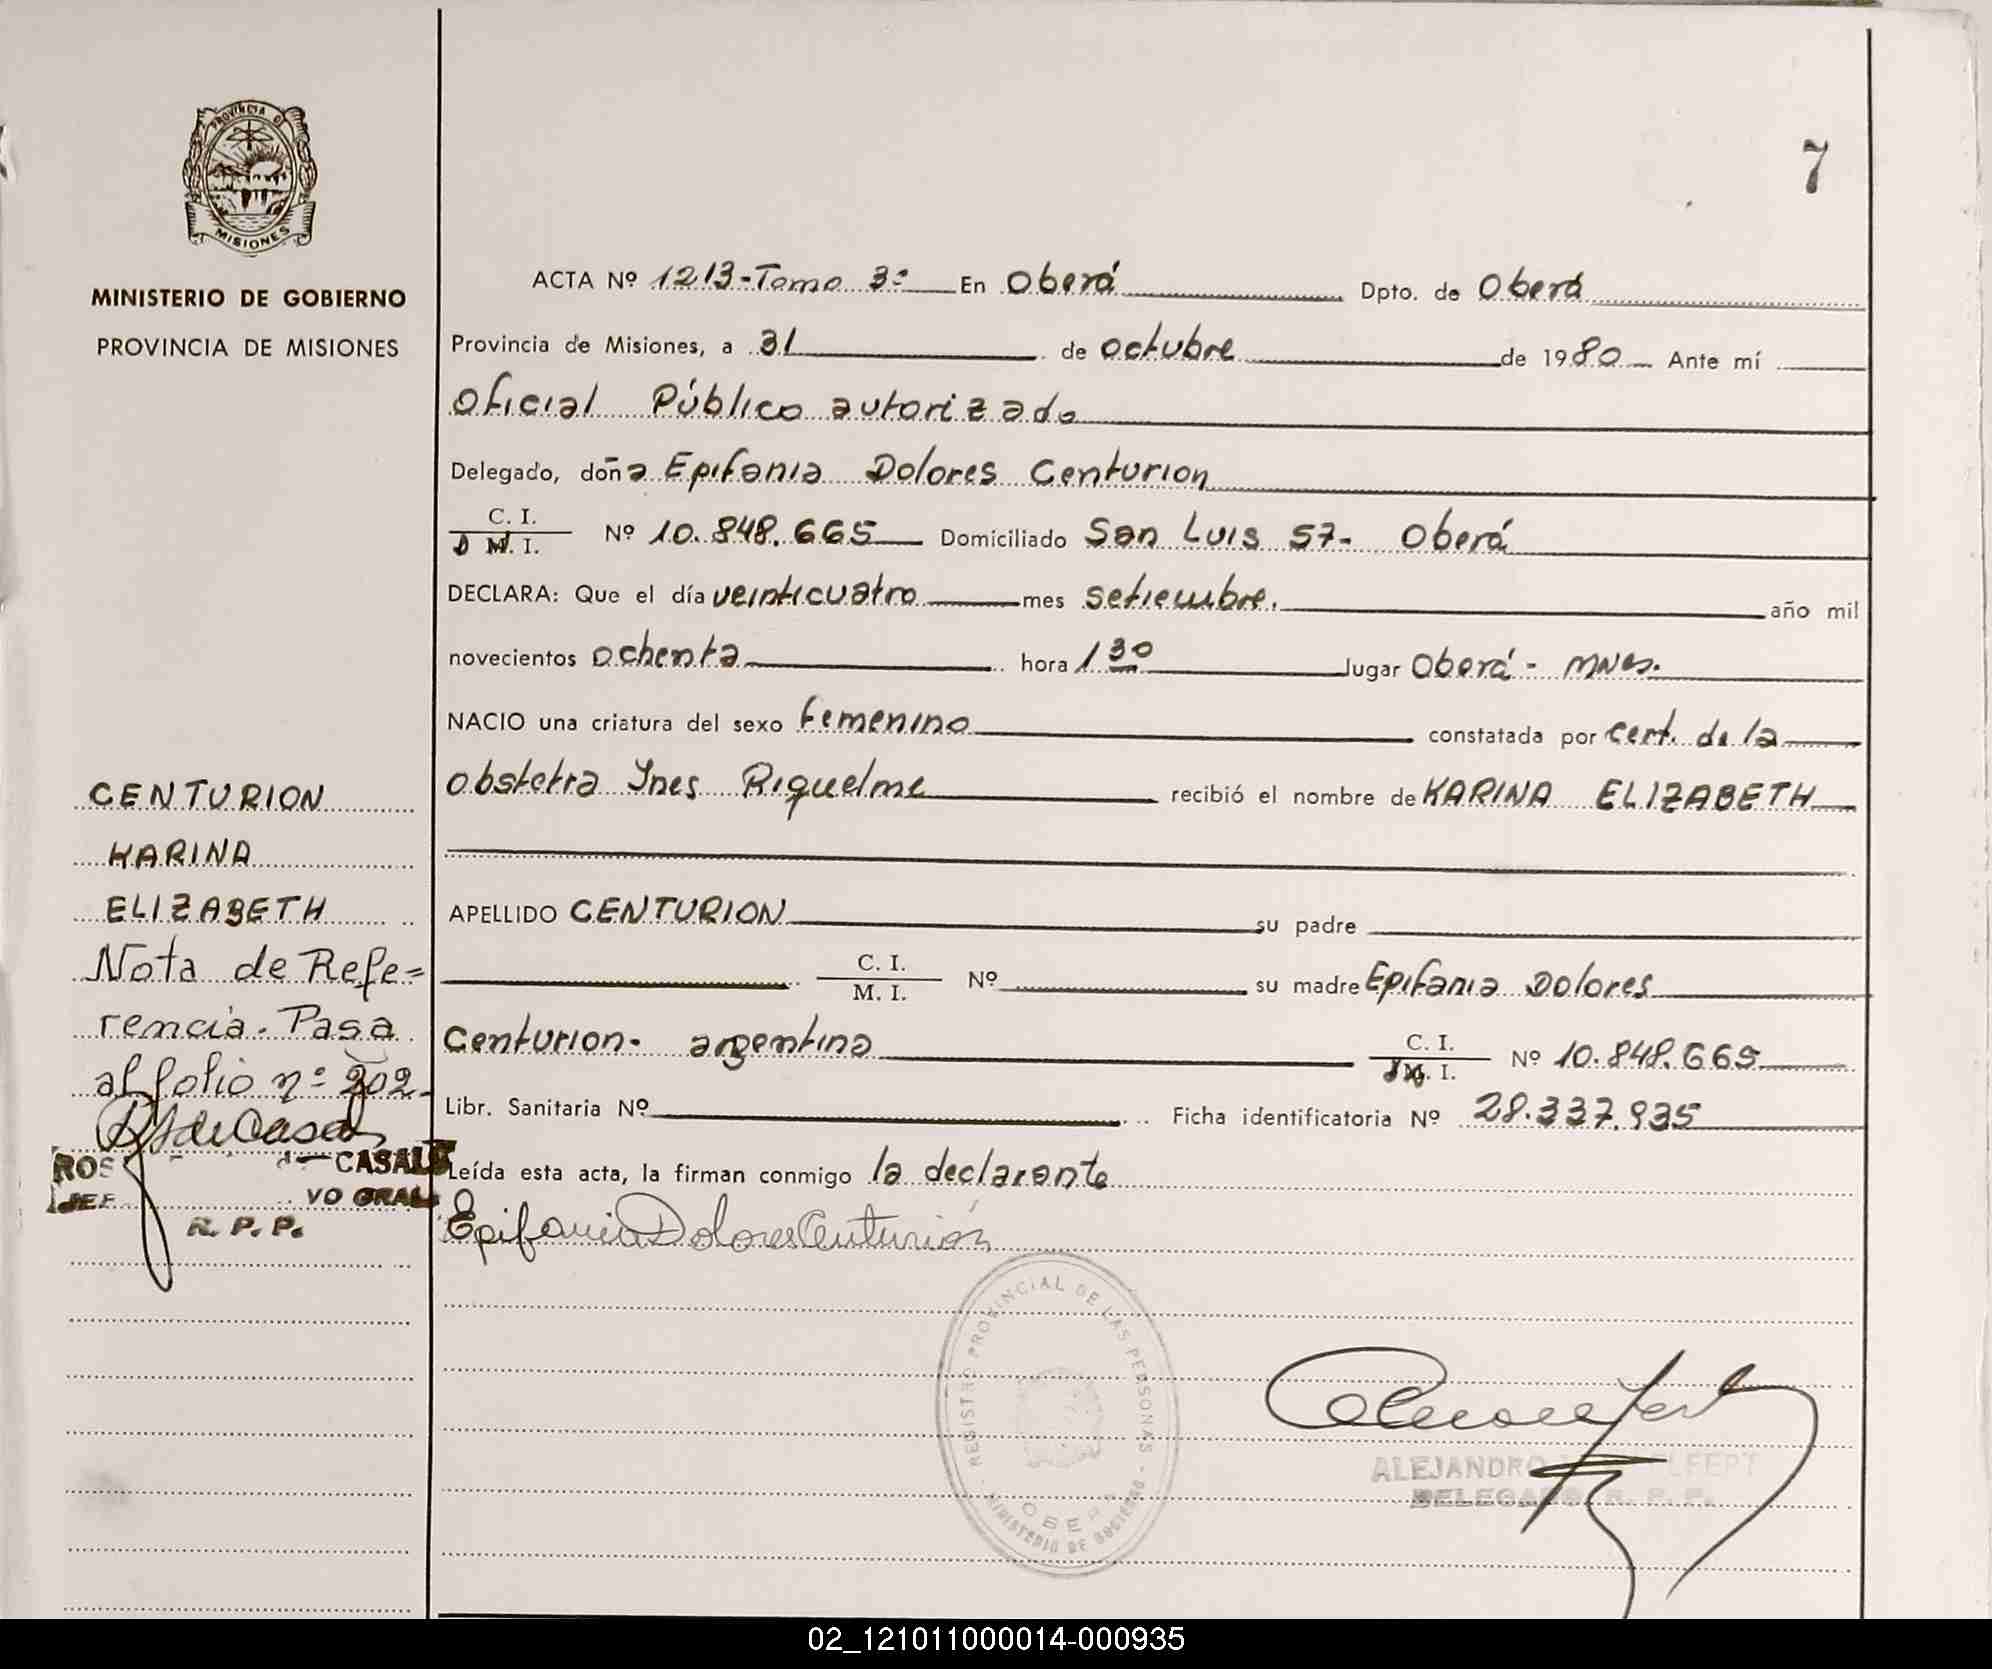 PROVINCIA DE
MISIONES
MINISTERIO DE GOBIERNO
PROVINCIA DE MISIONES
7
ACTA Nº 1213-Tomo 3º En Oberá Dpto. de Oberá
Provincia de Misiones, a 31 de octubre de 1980 Ante mí
Oficial Público autorizado
Delegado, doña Epifania Dolores Centurion
C. I.
D M. I. Nº 10.848.665 Domiciliado San Luis 57- Oberá
DECLARA: Que el día veinticuatro mes setiembre. año mil
novecientos ochenta hora 1 30 lugar Oberá - Mnes.
NACIO una criatura del sexo femenino constatada por cert. de la
obstetra Ines Riquelme recibió el nombre de KARINA ELIZABETH
APELLIDO CENTURION su padre
C. I.
M. I. Nº su madre Epifania Dolores
Centurion- argentina C. I.
M. I. Nº 10.848.665
Libr. Sanitaria Nº Ficha identificatoria Nº 28.337.935
Leída esta acta, la firman conmigo la declarante
Epifania Dolores Centurión
CENTURION
KARINA
ELIZABETH
Nota de Refe=
rencia. Pasa
al folio nº 202
ROS CASALE
JEF VO GRAL
R. P. P.
REGISTRO PROVINCIAL DE LAS PERSONAS
OBERA
MINISTERIO DE GOBIERNO
ALEJANDRO
DELEGADO R. P. P.
02_121011000014-000935